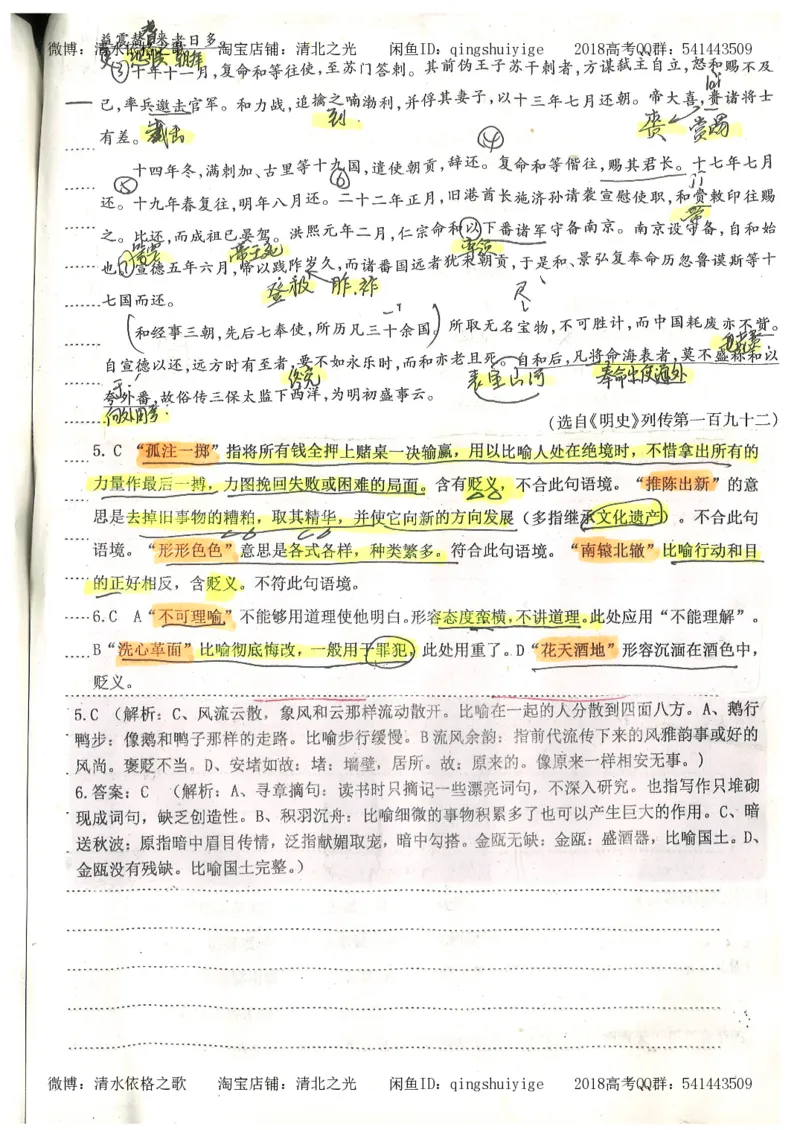 微博：清水依格之歌 淘宝店铺：清北之光 闲鱼ID：qingshuiyige 2018高考QQ群：541443509
益震詟，来者日多。
③十年十一月，复命和等往使，至苏门答剌。其前伪王子苏干剌者，方谋弑主自立，怒和赐不及
己，率兵邀击官军。和力战，追擒之喃渤利，并俘其妻子，以十三年七月还朝。帝大喜，赉诸将士
有差。
截击
到
赉 赏赐
④
十四年冬，满剌加、古里等十九国，遣使朝贡，辞还。复命和等偕往，赐其君长。十七年七月
⑤ ⑥
还。十九年春复往，明年八月还。二十二年正月，旧港酋长施济孙请袭宣慰使职，和赍敕印往赐
之。比还，而成祖已晏驾。洪熙元年二月，仁宗命和以下番诸军守备南京。南京设守备，自和始
帝王死
也。宣德五年六月，帝以践阼岁久，而诸番国远者犹未朝贡，于是和、景弘复奉命历忽鲁谟斯等十
登极 胙.祚
七国而还。
和经事三朝，先后七奉使，所历凡三十余国。所取无名宝物，不可胜计，而中国耗废亦不赀。
自宣德以还，远方时有至者，要不如永乐时，而和亦老且死。自和后，凡将命海表者，莫不盛称和以
终究 表里山河 奉命出使海外
夸外番，故俗传三保太监下西洋，为明初盛事云。
向外国夸
(选自《明史》列传第一百九十二)
5. C “孤注一掷”指将所有钱全押上赌桌一决输赢，用以比喻人处在绝境时，不惜拿出所有的
力量作最后一搏，力图挽回失败或困难的局面。含有贬义，不合此句语境。“推陈出新”的意
思是去掉旧事物的糟粕，取其精华，并使它向新的方向发展（多指继承文化遗产）。不合此句
语境。“形形色色”意思是各式各样，种类繁多。符合此句语境。“南辕北辙”比喻行动和目
的正好相反，含贬义。不符此句语境。
6. C A“不可理喻”不能够用道理使他明白。形容态度蛮横，不讲道理。此处应用“不能理解”。
B“洗心革面”比喻彻底悔改，一般用于罪犯，此处用重了。D“花天酒地”形容沉湎在酒色中，
贬义。
5.C （解析：C、风流云散，象风和云那样流动散开。比喻在一起的人分散到四面八方。A、鹅行
鸭步：像鹅和鸭子那样的走路。比喻步行缓慢。B流风余韵：指前代流传下来的风雅韵事或好的
风尚。褒贬不当。D、安堵如故：堵：墙壁，居所。故：原来的。像原来一样相安无事。）
6.答案：C （解析：A、寻章摘句：读书时只摘记一些漂亮词句，不深入研究。也指写作只堆砌
现成词句，缺乏创造性。B、积羽沉舟：比喻细微的事物积累多了也可以产生巨大的作用。C、暗
送秋波：原指暗中眉目传情，泛指献媚取宠，暗中勾搭。金瓯无缺：金瓯：盛酒器，比喻国土。D、
金瓯没有残缺。比喻国土完整。）
微博：清水依格之歌 淘宝店铺：清北之光 闲鱼ID：qingshuiyige 2018高考QQ群：541443509